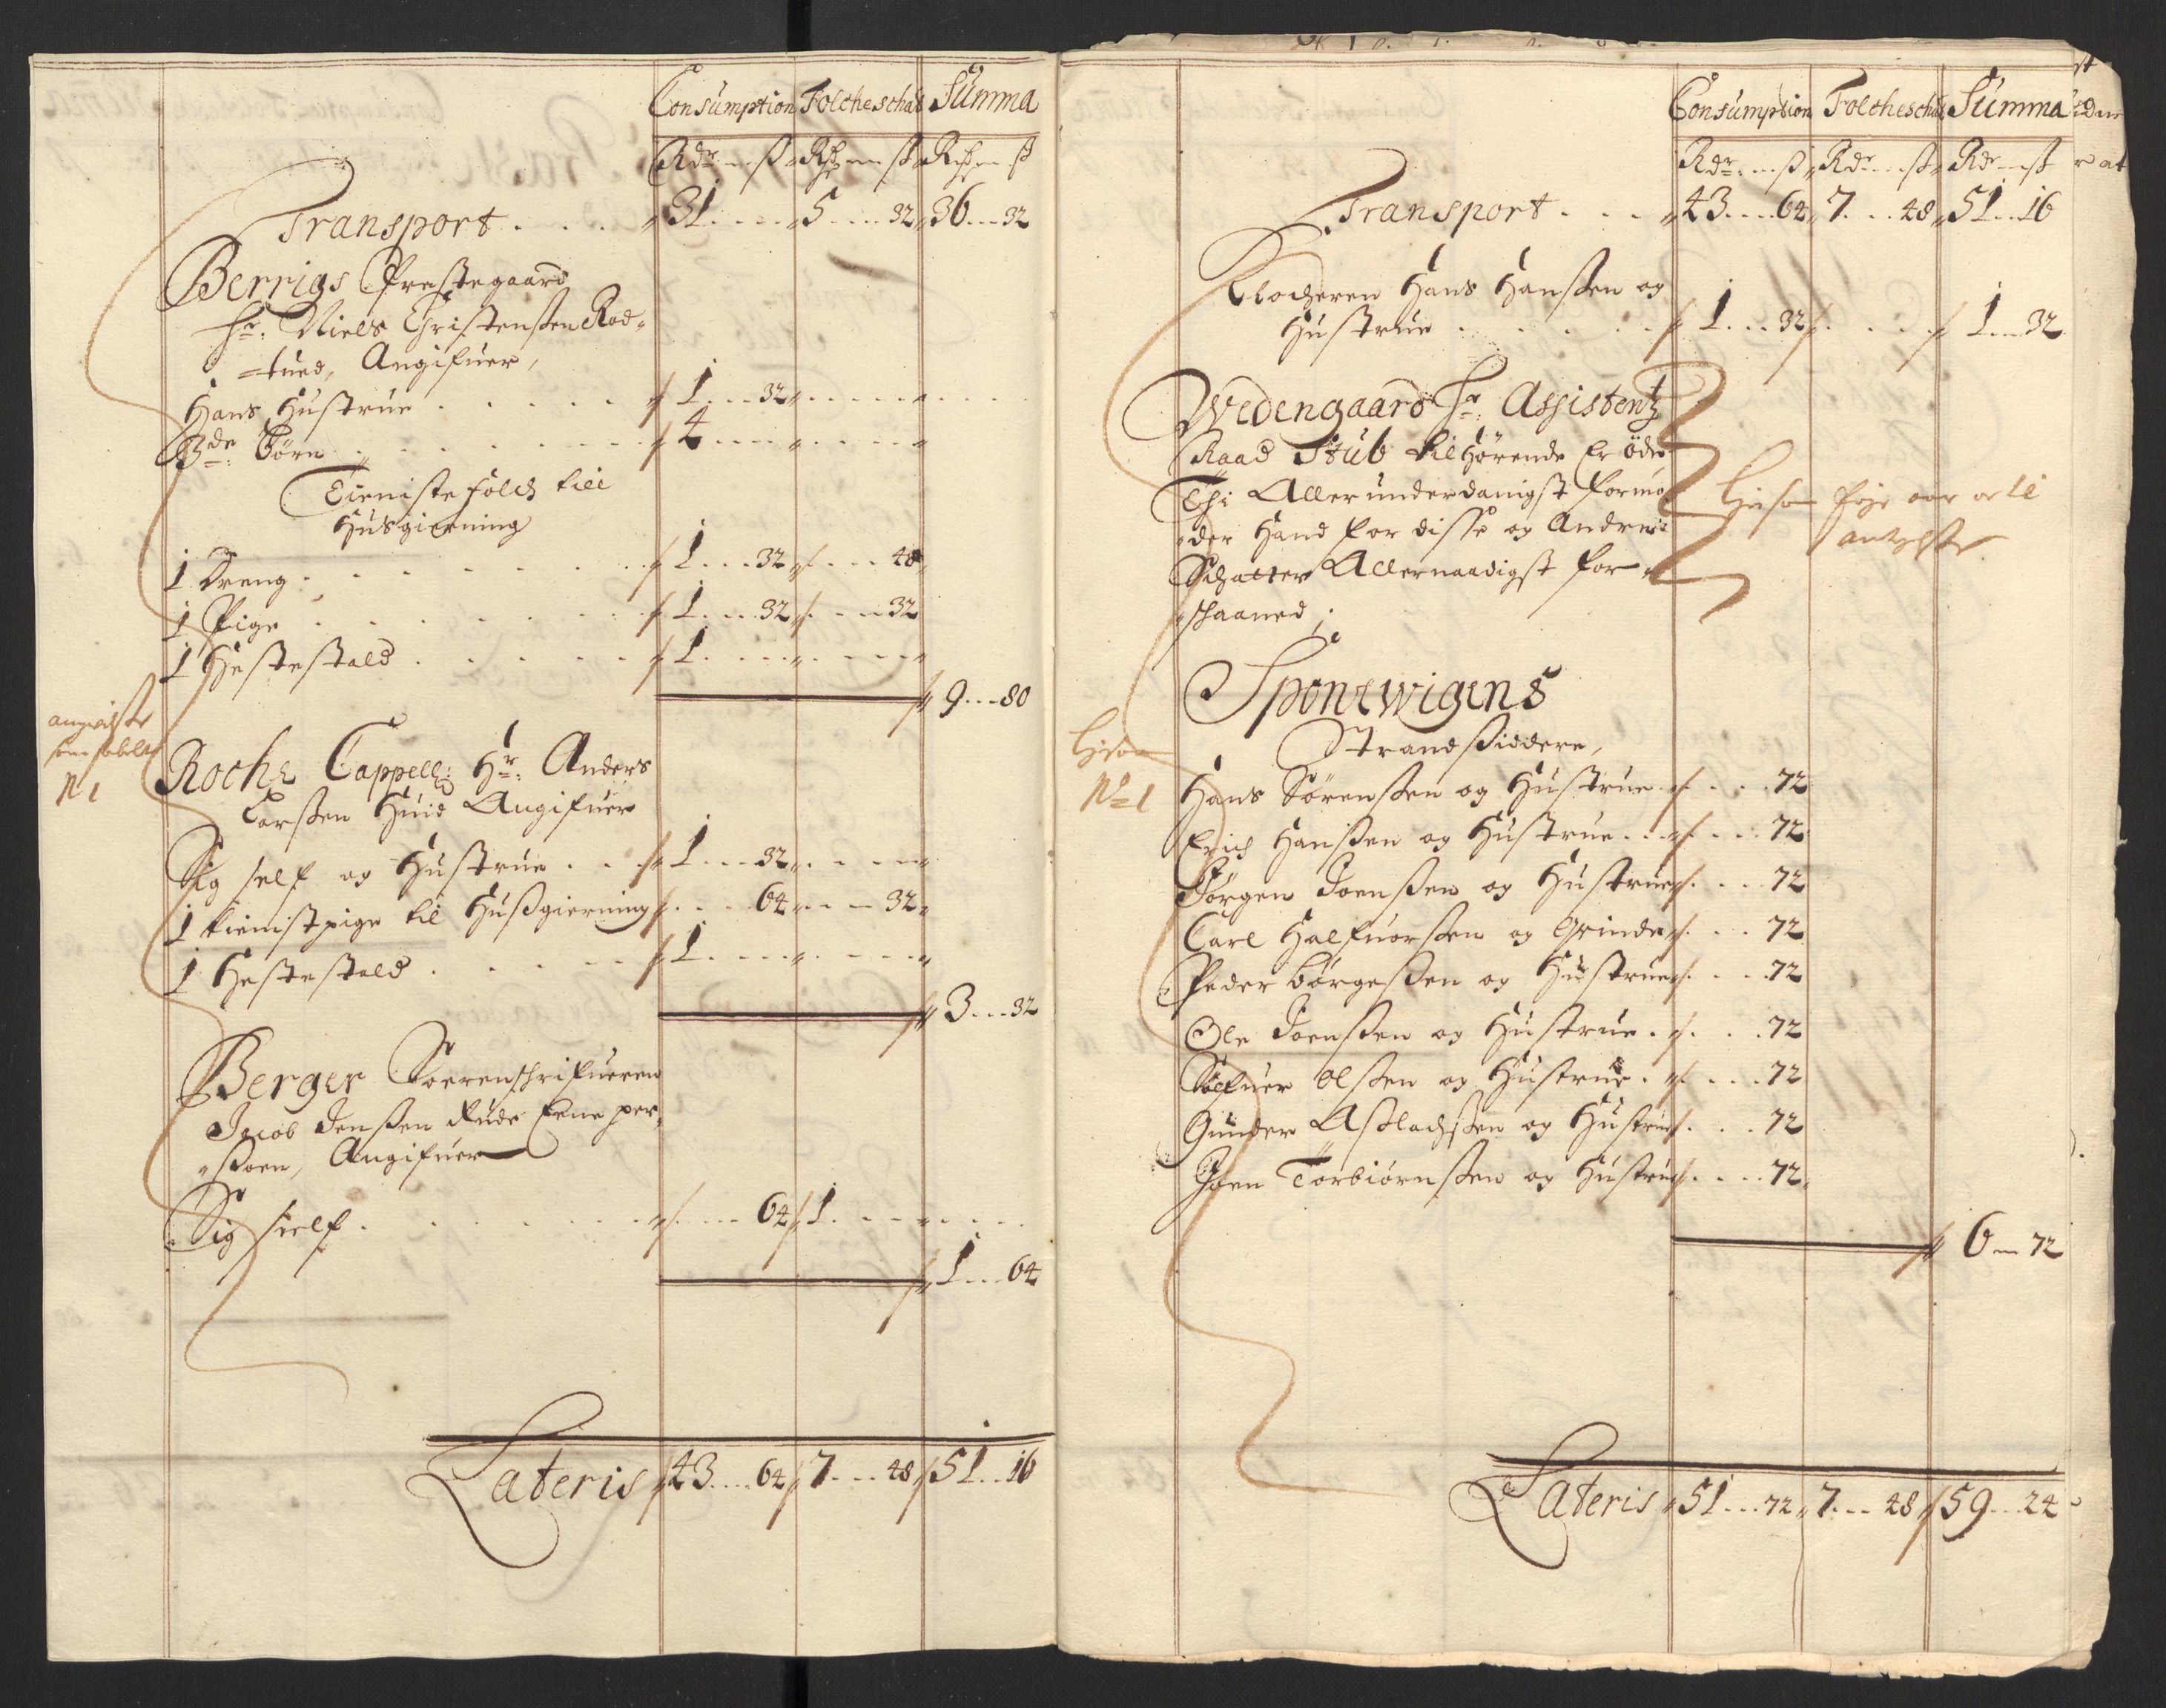 Consumption Folcheschat Summa
Rdr ß Rdr ß Rdr ß
Transport . . . 31 . . . 5 . . 32 36 . . 32
Berrigs Prestegaard
Hr: Niels Christensen Rod-
=tued, Angifuer,
Hans Hustrue . . . . . 1 . . . 32
3de: börn . . . . . 4
Tieniste folch till
Husgierning
1 Dreng . . . . . 1 . . . 32 . . . 48
1 Pige . . . . . 1 . . . 32 . . . 32
1 Hestestald . . . . . 1
9 . . . 80
N 1
Roche Cappell: Hr: Anders
Larsen Huid Angifuer
Sig self og Hustrue . . . 1 . . . 32
1 tienistpige til Hußgierning . . . 64 . . . 32
1 Hestestald . . . . . 1
3 . . . 32
Berger Sorenschrifueren
Jacob Jensen Rude Eene per-
soen, Angifuer
Sig sielf . . . . . 64 1
1 . . . 64
Lateris 43 . . . 64 7 . . . 48 51 . . 16
Consumption Folcheschat Summa
Rdr ß Rdr ß Rdr ß
Transport . . . 43 . . . 64 7 . . . 48 51 . . 16
Klocheren Hans Hansen og
Hustrue . . . . . 1 . . . 32 . . . 1 . . . 32
Wedengaard Hr: Assistentz
Raad Stub tilhörende Er öde
Thi Allerunderdanigst formo-
der Hand for disse og Andre
Schatter Allernaadigst for-
schaaned;
Spontwigens
Strandsiddere,
No 1
Hans Sörensen og Hustrue . . . 72
Erich Hansen og Hustrue . . . 72
Jörgen Joensen og Hustrue . . . 72
Carl Halfuorsen og Qvinde . . . 72
Peder Börgesen og Hustrue . . . 72
Ole Joensen og Hustrue . . . 72
Solfuer Olsen og Hustrue . . . 72
Gunder Aslachsen og Hustrue . . . 72
Joen Torbiörnsen og Hustrue . . . 72
6 . . 72
Lateris 51 . . . 72 7 . . . 48 59 . . . 24